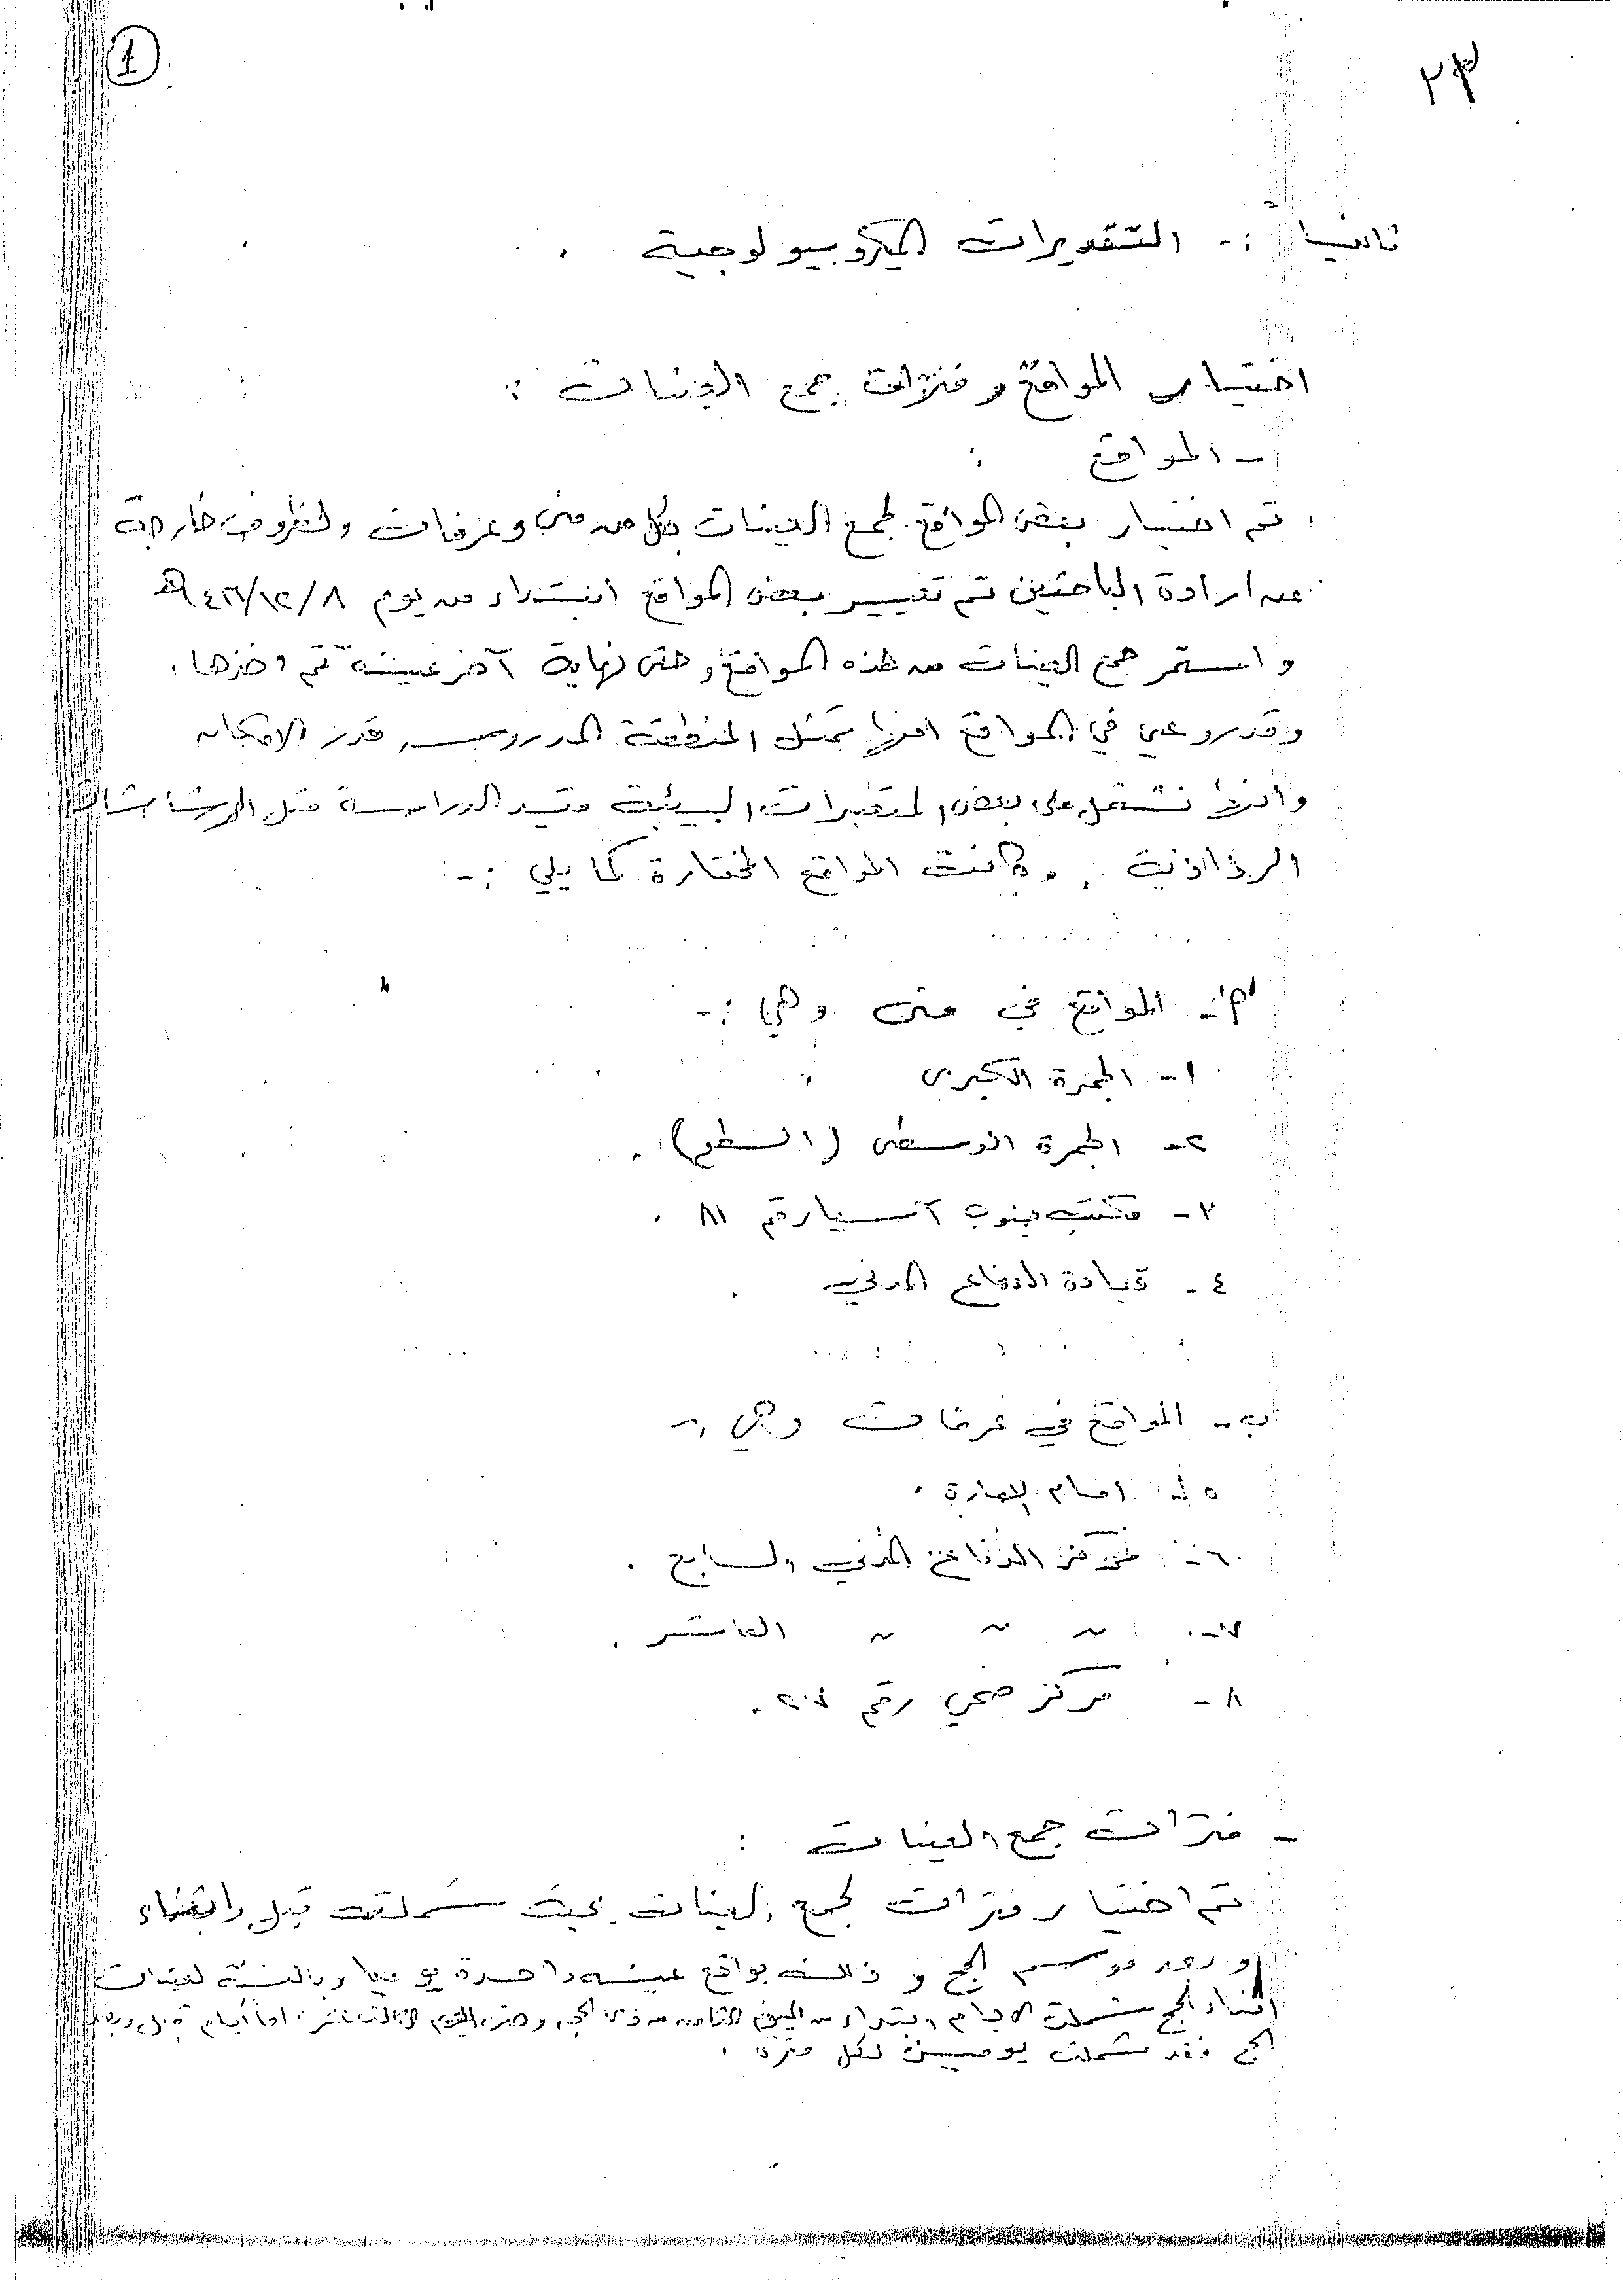 1
٢٣
ثانيا :- التقديرات الميكروبيولوجية .
اختيار المواقع وفترات جمع العينات :
- المواقع :
تم اختيار بعض المواقع لجمع العينات بكل من منى وعرفات ولظروف خارجة
عن ارادة الباحثين تم تغيير بعض المواقع ابتداء من يوم ٨/١٢/
واستمر جمع العينات من هذه المواقع وحتى نهاية آخر عينة تم اخذها .
وقد روعي في المواقع انها تمثل المنطقة المدروسة قدر الامكان
وانها تشتمل على بعض المتغيرات البيئية قيد الدراسة مثل الرشاشات
الرذاذية . وكانت المواقع المختارة كما يلي :-
أ - المواقع في منى وهي :-
١- الجمرة الكبرى .
٢- الجمرة الوسطى (السطح) .
٣- مكتب جنوب آسيا رقم ٨١ .
٤- قيادة الدفاع المدني .
ب - المواقع في عرفات وهي :-
٥- امام الامارة .
٦- مركز الدفاع المدني السابع .
٧- " " " العاشر .
٨- مركز صحي رقم ٢٠٧ .
- فترات جمع العينات :
تم اختيار فترات لجمع العينات بحيث شملت قبل واثناء
وبعد موسم الحج وذلك بواقع عينة واحدة يوميا وبالنسبة لعينات
اثناء الحج شملت الايام ابتداء من اليوم الثامن من ذي الحجة وحتى اليوم الثالث عشر . اما أيام قبل وبعد
الحج فقد شملت يومين لكل فترة .